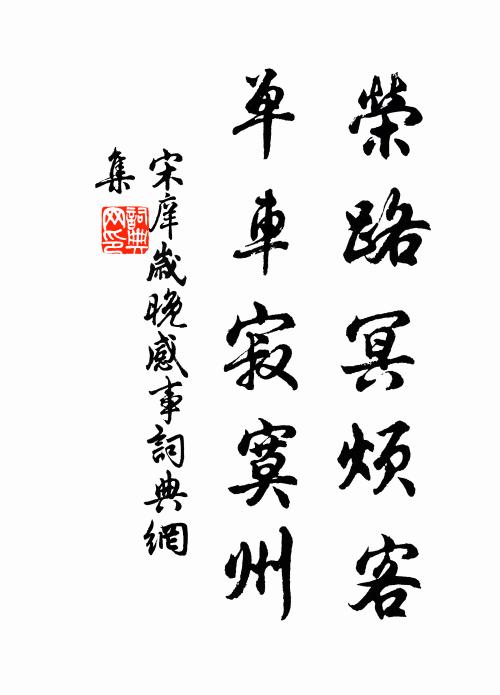 榮路冥煩客
單車寂寞州
宋庠歲晚感事詞典網
集
詞典网印